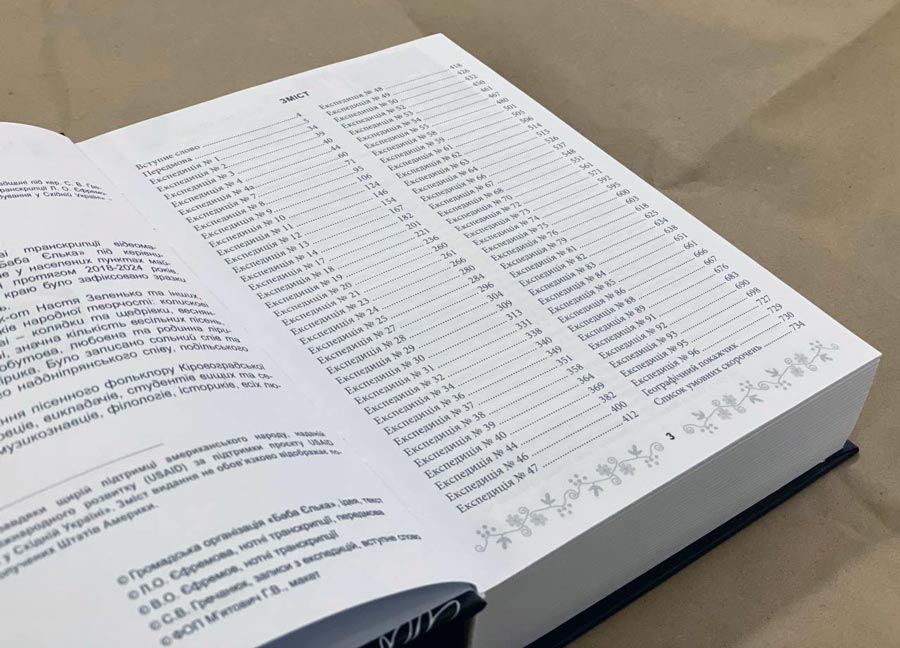 єбщині під кер. С. В. Гре-
транскрипції Л. О. Єфремо-
бування у Східній Україні» –
транскрипції відеома-
«Баба Єлька» під керівни-
не у населених пунктах май-
протягом 2018-2024 років.
краю було зафіксовано зразки
к-от Настя Зеленько та інших.
ків народної творчості: колискові
– колядки та щедрівки, веснян-
і, значна кількість весільних пісень,
обутова, любовна та родинна лірика
ірика. Було записано сольний спів та
наддніпрянського співу, подільського
ння пісенного фольклору Кіровоградської
вців, викладачів, студентів вищих та се-
музикознавців, філологів, істориків, всіх лю-
завдяки щирій підтримці американського народу, наданій
жнародного розвитку (USAID) за підтримки проєкту USAID
у Східній Україні». Зміст видання не обов'язково відображає по-
лучених Штатів Америки.
© Громадська організація «Баба Єлька», ідея, текст
© Л.О. Єфремова, нотні транскрипції, передмова
© В.О. Єфремов, нотні транскрипції
© С.В. Гречанюк, записи з експедицій, вступне слово
© ФОП М'ятович Г.В., макет
ЗМІСТ
Вступне слово 4
Передмова 5
Експедиція № 1 34
Експедиція № 2 39
Експедиція № 3 40
Експедиція № 4 44
Експедиція № 4а 60
Експедиція № 7 71
Експедиція № 8
Експедиція № 9
Експедиція № 10
Експедиція № 11
Експедиція № 12
Експедиція № 14
Експедиція № 17
Експедиція № 18
Експедиція № 19
Експедиція № 20
Експедиція № 21
Експедиція № 24 280
Експедиція № 25 284
Експедиція № 27 296
Експедиція № 28 304
Експедиція № 29 309
Експедиція № 30 313
Експедиція № 31 331
Експедиція № 32 338
Експедиція № 34 340
Експедиція № 36 349
Експедиція № 37 351
Експедиція № 38 358
Експедиція № 39 364
Експедиція № 40 369
Експедиція № 44 382
Експедиція № 46 400
Експедиція № 47 412
Експедиція № 48 418
Експедиція № 49 426
Експедиція № 50 432
Експедиція № 52 450
Експедиція № 53 461
Експедиція № 54 467
Експедиція № 55 480
Експедиція № 58 501
Експедиція № 59 505
Експедиція № 61 506
Експедиція № 62 514
Експедиція № 63 515
Експедиція № 64 526
Експедиція № 66 537
Експедиція № 67 548
Експедиція № 68 551
Експедиція № 70 561
Експедиція № 72 571
Експедиція № 73 592
Експедиція № 74 595
Експедиція № 75 600
Експедиція № 76 603
Експедиція № 79 618
Експедиція № 81 625
Експедиція № 82 634
Експедиція № 83 638
Експедиція № 84 651
Експедиція № 85 661
Експедиція № 86 666
Експедиція № 88 667
Експедиція № 89 676
Експедиція № 91 683
Експедиція № 92 690
Експедиція № 93 698
Експедиція № 95 727
Експедиція № 96 729
Географічний покажчик 730
Список умовних скорочень 734
3